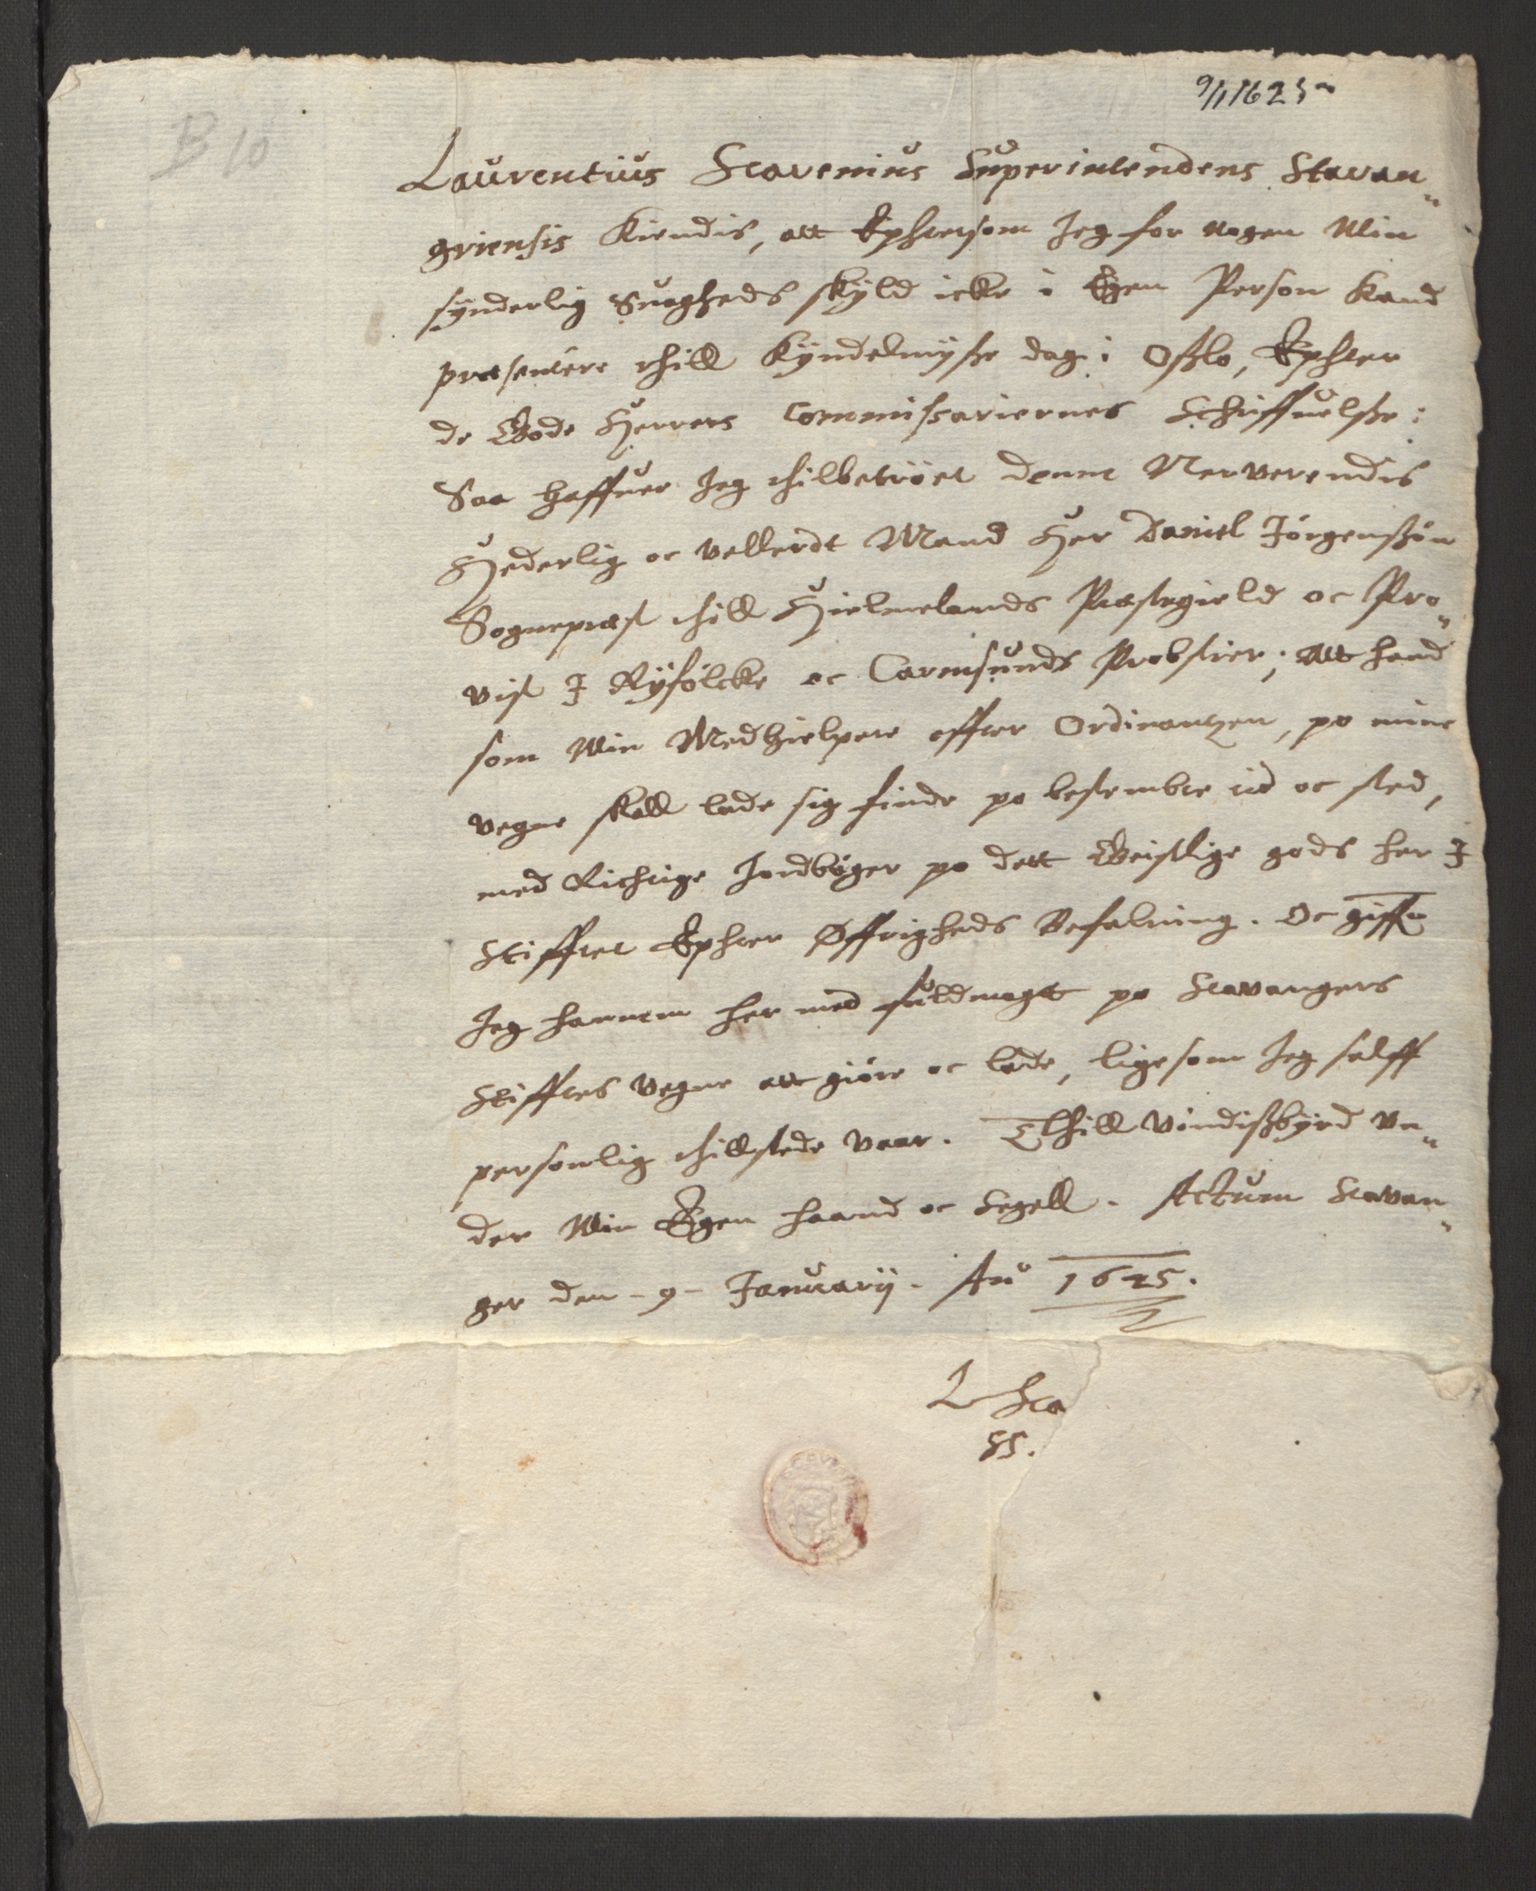 9/1 1625
B 10
Laurentius Scavenius Superintendens Stavan„
griensis Kiendis, att Ephtersom Jeg for nogen Min
synderlig Suagheds skyld icke i Egen Person kand
præsentere thill Kyndelmysse dag i Osslo, Ephter
de Gode Herrers Commissariernes Schriffuelsse:
Saa haffuer Jeg thilbetroet denne Nerverendis
Hederlig oc vellerdt Mand Her Daniel Jörgenssön
Sognepræst thill Hielmelands Præstegield oc Pro„
vist I Ryfölcke oc Carmsunds Probstier; Att hand
som Min Medhielpere effter Ordinantzen, po mine
vegne skall lade sig finde po bestembte tid oc sted,
med Richtige Jordböger po dett Geistlige gods her I
Stifftet Ephter Øffrigheds Befalning. Oc giffr
Jeg hannem her med fuldmagtt po Stavangers
Stifftes vegne att giöre oc lade, ligesom Jeg selff
personlig thillstede vaar. Thill vindissbyrd Un„
der Min Egen haand oc Segell. Actum Stavan„
ger den - 9 - Januarij. Aō 1625.
L Sca
SS.